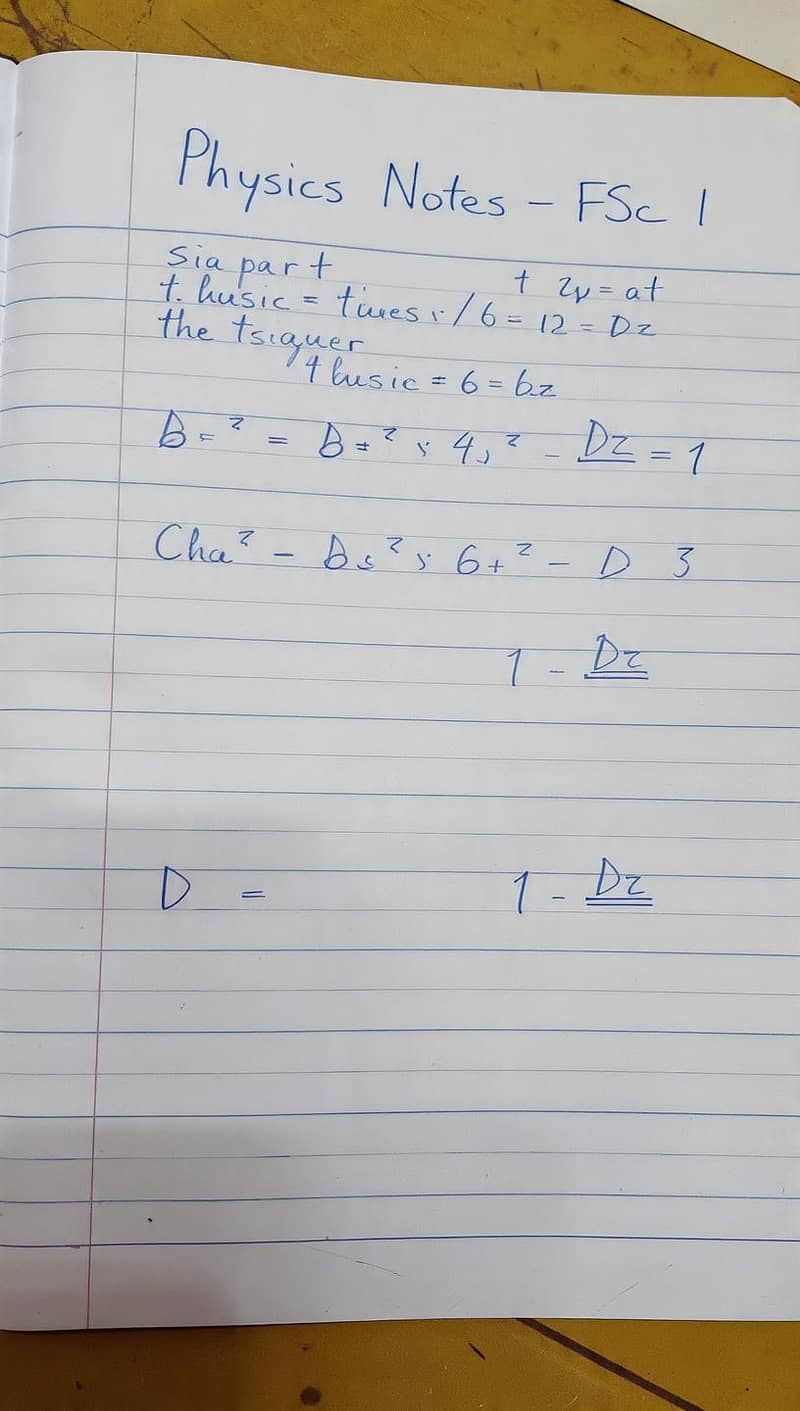 Physics Notes - FSc 1
sia part
t 2v = at
t. husic = times /6 = 12 = Dz
the tsiquer
4 husic = 6 = bz
B = ² = B = ² 4, ² - Dz = 1
Cha² - bs² 6+² - D 3
1 - Dz
D =
1 - Dz